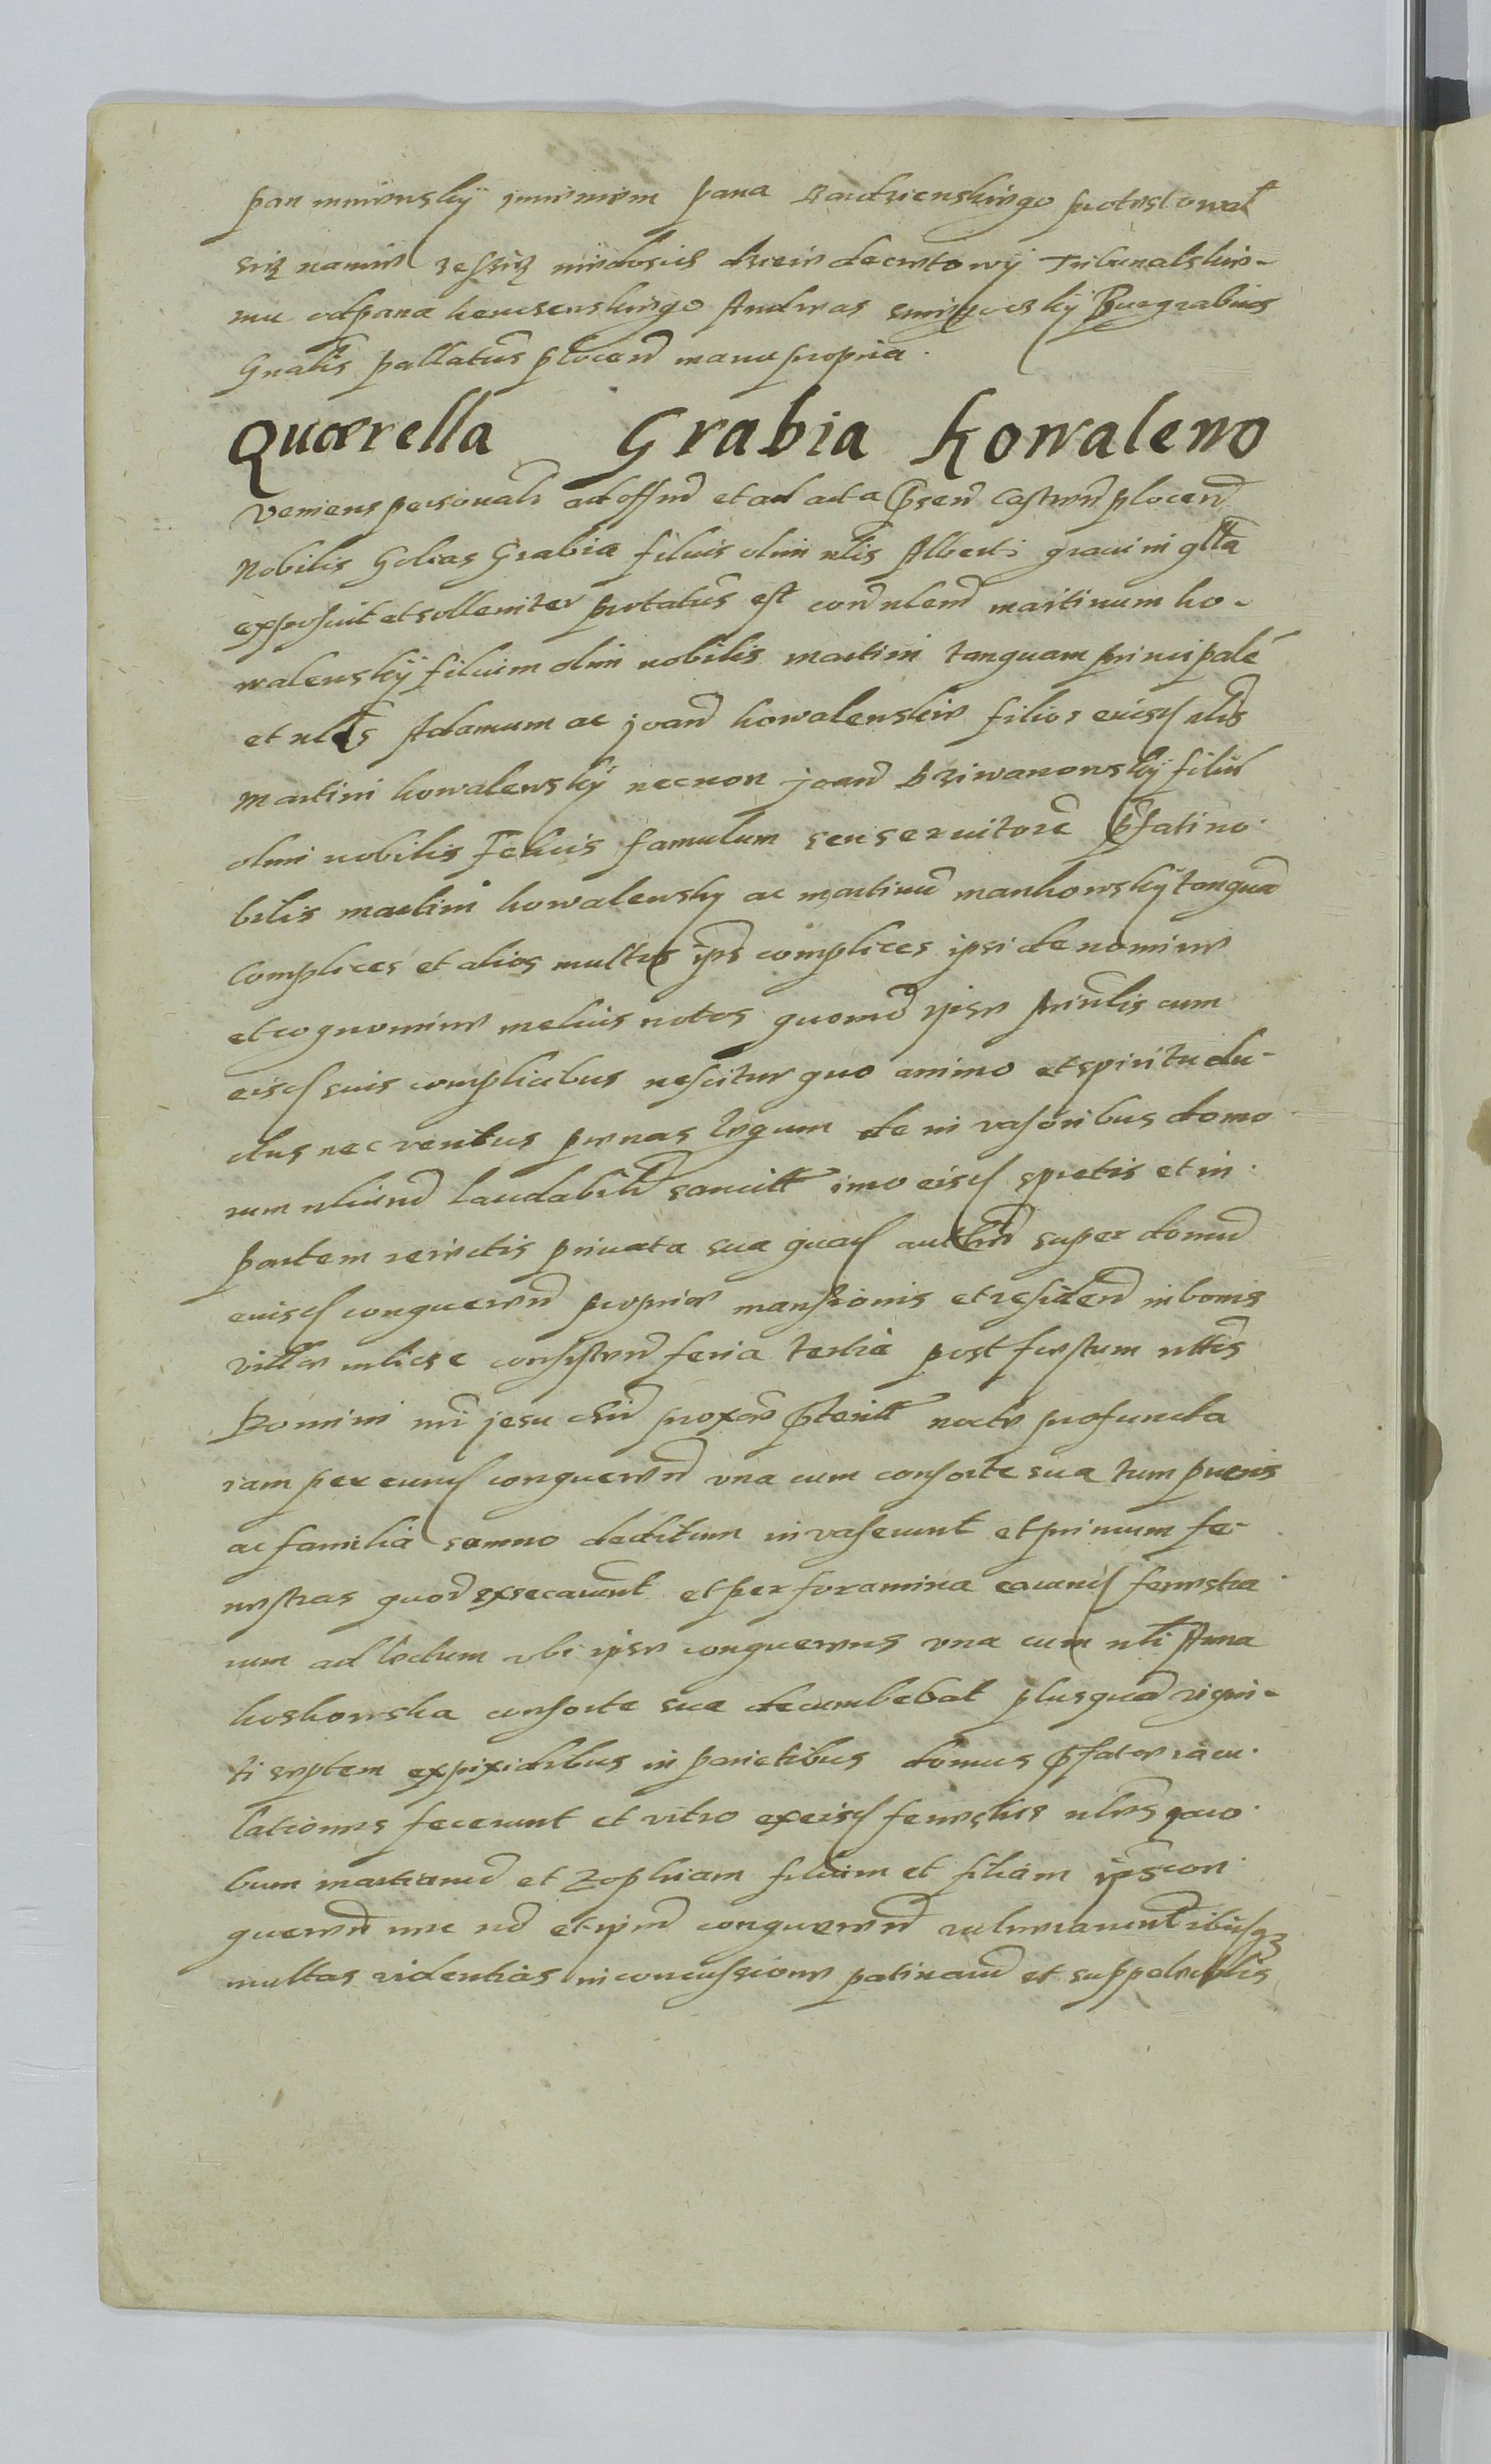 pan mniewsky imieniem pana Radzienskiego protestowal
się namie zeszię niedosici dzieie decretowy Tribunalskie-
mu odpana Andreas Burgrabius
Gnalis pallatus plocen manu propria.
Quærella Grabia Kowalewo
Veniens personalr ad offm et ad acta psen Castren plocen
Nobilis Golias Grabia filius olim nlis Alberti graui in qlla
exposuit et solleniter prtatus est con nlem martinum ko-
walensky filium olim nobilis martini tanquam principale
et nles Adamum ac joan kowalenskie filios eiusd nlis
Martini kowalensky necnon joan Dziwanowsky filiu
olim nobilis Felicis famulum seu seruitore pfati no-
bilis martini kowalensky ac martinu mankowsky tanqua
Complices et alios multos ips complices ipsi de nomine
et cognomine melius notos quomo ipse prinlis cum
eisd suis complicibus nescitur quo animo et spiritu du-
ctus nec veritus penas legum de in vasoribus domo
rum nlium laudabilr sancitt imo eisd spretis et in
partem reiectis priuata sua quad autte super domu
eiusd conqueren propriæ mansionis et residen in bonis
villæ consisten feria tertia post festum nttis
Domini nri jesu chri proxime pterit nocte profunda
iam per eund conqueren vna cum consorte sua tum pueris
ac familia somno deditum in vaserunt et primum fe-
nestras quod exsecarunt et per foramina earund fenestra
rum ad lectum vbi ipse conquerens vna cum nli Anna
koskowska consorte sua decumbebat plusqua vigin-
ti septem ex pixidibus in parietibus domus pfatæ iacu-
lationes fecerunt et vitro ex eisd fenestris nles jaco-
bum martianu et Zophiam filium et filiam ips con-
queren nec no et ipm conqueren vulnerarunt ibidqz
multas videntias in concussione patinaru et suppelectilis